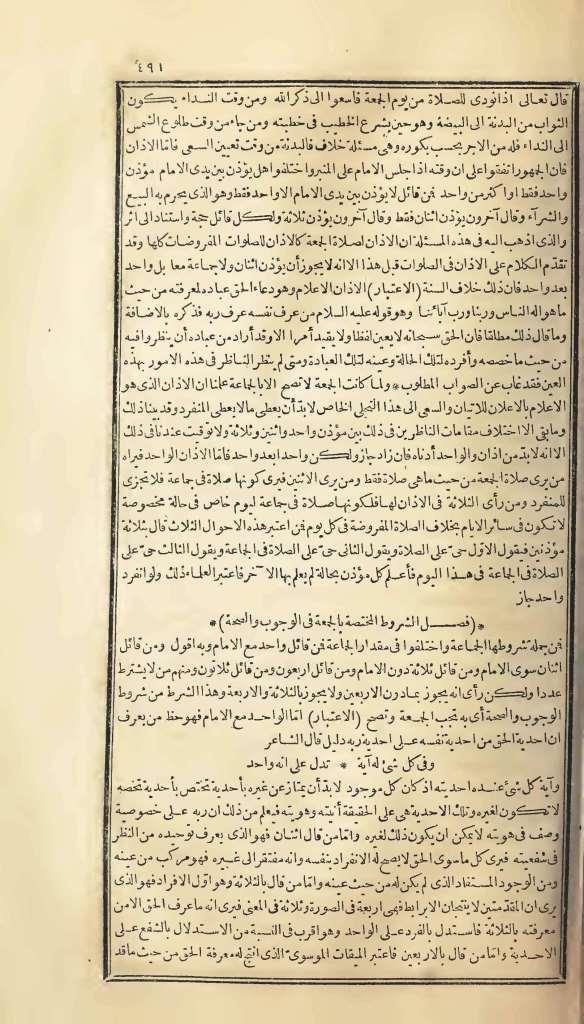 ٤٩١
قال تعالى اذا نودى للصلاة من يوم الجمعة فاسعوا الى ذكر الله ومن وقت النداء يكون
الثواب من البدنة الى البيضة وهو حين يشرع الخطيب فى خطبته ومن جاء من وقت طلوع الشمس
الى النداء فله من الاجر بحسب بكوره وهى مسئلة خلاف فالبدنة من وقت تعيين السعى فاما الاذان
فان الجمهور اتفقوا على ان وقته اذا جلس الامام على المنبر واختلفوا هل يؤذن بين يدى الامام مؤذن
واحد فقط او اكثر من واحد فمن قائل لا يؤذن بين يدى الامام الا واحد فقط وهو الذى يحرم به البيع
والشرآء وقال آخرون يؤذن اثنان فقط وقال آخرون يؤذن ثلاثة ولكل قائل حجة واستناد الى اثر
والذى اذهب اليه فى هذه المسئلة ان الاذان لصلاة الجمعة كالاذان للصلوات المفروضات كلها وقد
تقدم الكلام على الاذان فى الصلوات قبل هذا الا انه لا يجوز أن يؤذن اثنان ولا جماعة معا بل واحد
بعد واحد فان ذلك خلاف السنة (الاعتبار) الاذان الاعلام وهو دعاء الحق عباده لمعرفته من حيث
ما هو اله الناس وربنا ورب آبائنا وهو قوله عليه السلام من عرف نفسه عرف ربه فذكره بالاضافة
وما قال ذلك مطلقا فان الحق سبحانه لا يعين لفظا ولا يقيد أمرا الا وقد أراد من عباده أن ينظروا فيه
من حيث ما خصصه وأفرده لتلك الحالة وعينه لتلك العبادة ومتى لم ينظر الناظر فى هذه الامور بهذه
العين فقد غاب عن الصواب المطلوب * ولما كانت الجمعة لا تصح الا بالجماعة علمنا ان الاذان الذى هو
الاعلام بالاعلان للاتيان والسعى الى هذا التجلى الخاص لا بد أن يعطى ما لا يعطى المنفرد وقد بينا ذلك
وما بقى الا اختلاف مقامات الناظرين فى ذلك بين مؤذن واحد واثنين وثلاثة ولا توقيت عندنا فى ذلك
الا انه لا بد من اذان والواحد أدناه فان زاد جاز ولكن واحدا بعد واحد فاما الاذان الواحد فيراه
من يرى صلاة الجمعة من حيث ما هى صلاة فقط ومن يرى الاثنين فيرى كونها صلاة فى جماعة فلا تجزى
للمنفرد ومن رأى الثلاثة فى الاذان لها فلكونها صلاة فى جماعة ليوم خاص فى حالة مخصوصة
لا تكون فى سائر الايام بخلاف الصلاة المفروضة فى كل يوم فمن اعتبر هذه الاحوال الثلاث قال بثلاثة
مؤذنين فيقول الاوّل حىّ على الصلاة ويقول الثانى حىّ على الصلاة فى الجماعة ويقول الثالث حىّ على
الصلاة فى الجماعة فى هذا اليوم فأعلم كل مؤذن بحالة لم يعلم بها الآخر فاعتبر العلماء ذلك ولو انفرد
واحد جاز
*(فصـــل الشروط المختصة بالجمعة فى الوجوب والصحة)*
فمن جملة شروطها الجماعة واختلفوا فى مقدار الجماعة فمن قائل واحد مع الامام وبه اقول ومن قائل
اثنان سوى الامام ومن قائل ثلاثة دون الامام ومن قائل اربعون ومن قائل ثلاثون ومنهم من لا يشترط
عددا ولكن رأى انه يجوز بما دون الاربعين ولا يجوز بالثلاثة والاربعة وهذا الشرط من شروط
الوجوب والصحة أى به تجب الجمعة وتصح (الاعتبار) اما الواحد مع الامام فهو حظ من يعرف
ان احدية الحق من احدية نفسه على احدية ربه دليل قال الشاعر
وفى كل شئ له آية * تدل على انه واحد
وآية كل شئ عنده احديته اذ كان كل موجود لا بد أن يمتاز عن غيره بأحدية تختص بأحدية تخصه
لا تكون لغيره وتلك الاحدية هى على الحقيقة أنيته وهويته فيعلم من ذلك ان ربه على خصوصية
وصف فى هويته لا يمكن ان يكون ذلك لغيره وامّا من قال اثنان فهو الذى يعرف توحيده من النظر
فى شفعيته فيرى كل ما سوى الحق لا يصح له الانفراد بنفسه وانه مفتقر الى غيره فهو مركب من عينه
ومن الوجود المستفاد الذى لم يكن له من حيث عينه وامّا من قال بالثلاثة وهو اوّل الافراد فهو الذى
يرى ان المقدّمتين لا ينتجان الا برابط فهى اربعة فى الصورة وثلاثة فى المعنى فيرى انه ما عرف الحق الا من
معرفته بالثلاثة فاستدل بالفرد على الواحد وهو اقرب فى النسبة من الاستدلال بالشفع على
الاحدية وامّا من قال بالاربعين فاعتبر الميقات الموسوىّ الذى انتج له معرفة الحق من حيث ما قد